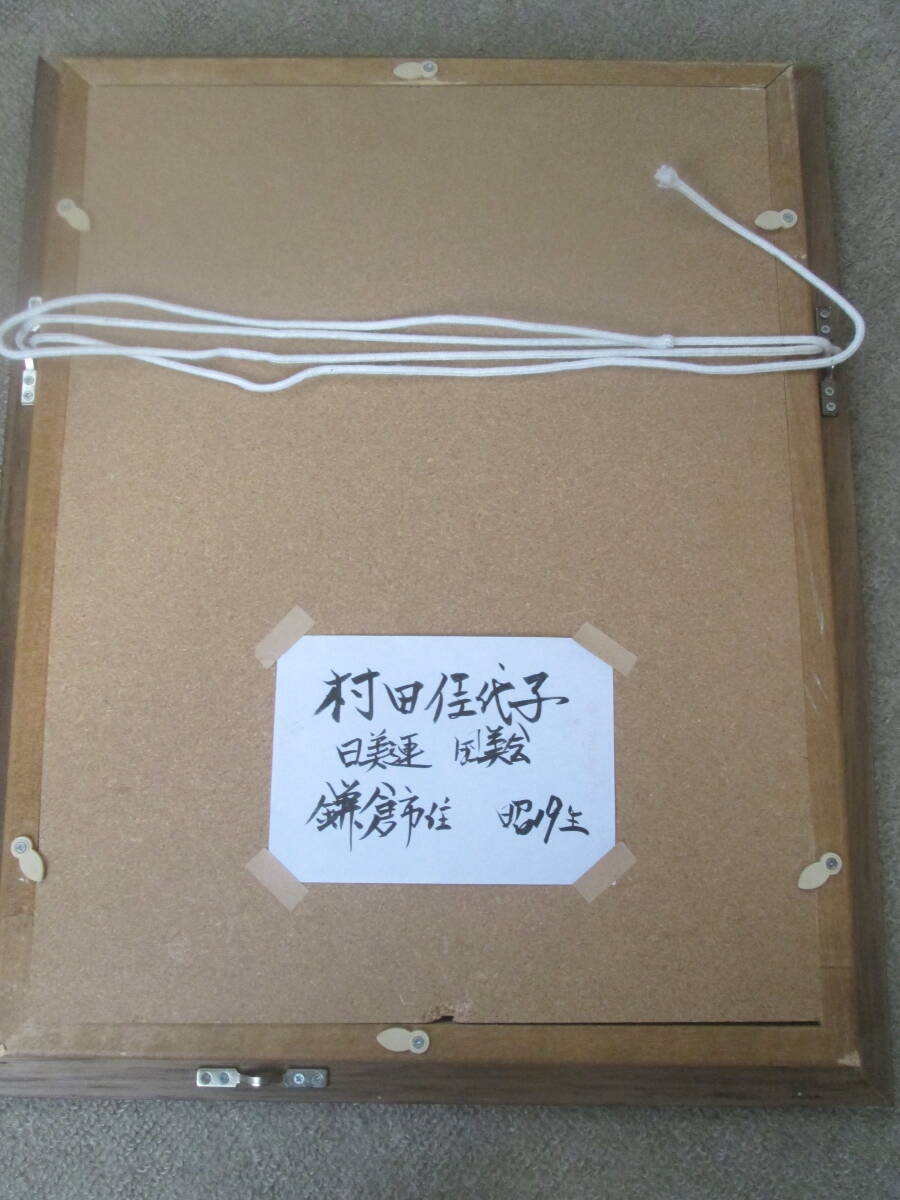 村田佳代子
日美連 国美会
鎌倉市住 昭19生